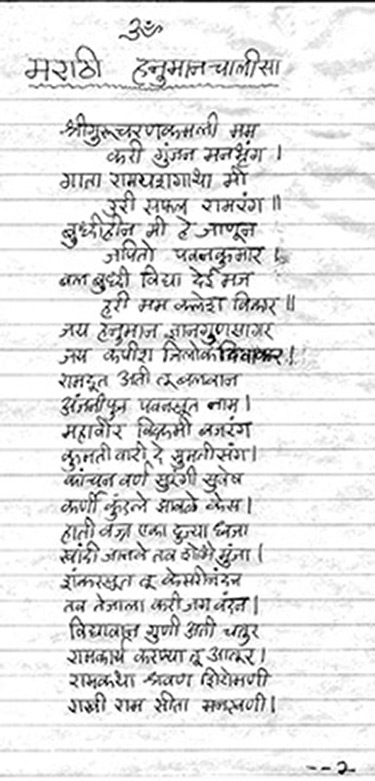 ॐ
मराठी हनुमानचालीसा
श्रीगुरुचरणकमली मम
करी गुंजन मनभृंग ।
गाता रामयशगाथा मी
उरी सफल रामरंग ॥
बुध्दीहीन मी हे जाणून
जपितो पवनकुमार ।
बल बुध्दी विद्या देई मज
हरी मम क्लेश विकार ॥
जय हनुमान ज्ञानगुणसागर
जय कपीश त्रिलोकदिवाकर ।
रामदूत अती तू बलवान
अंजनीपुत्र पवनसूत नाम ।
महावीर विक्रमी बजरंग
कुमती वारी दे सुमतीसंग ।
कांचन वर्ण सुरंगी सुवेष
कर्णी कुंडले सावळे केस ।
हाती वज्र एका दुज्या ध्वजा
खांदी जानवे तव शोभे मुंजा ।
शंकरसूत तू केसरीनंदन
तव तेजाला करी जग वंदन ।
विद्यावान गुणी अती चतुर
रामकार्य करण्या तू आतूर ।
रामकथा श्रवण शिरोमणी
राखी राम सीता मनस्मणी ।
--२